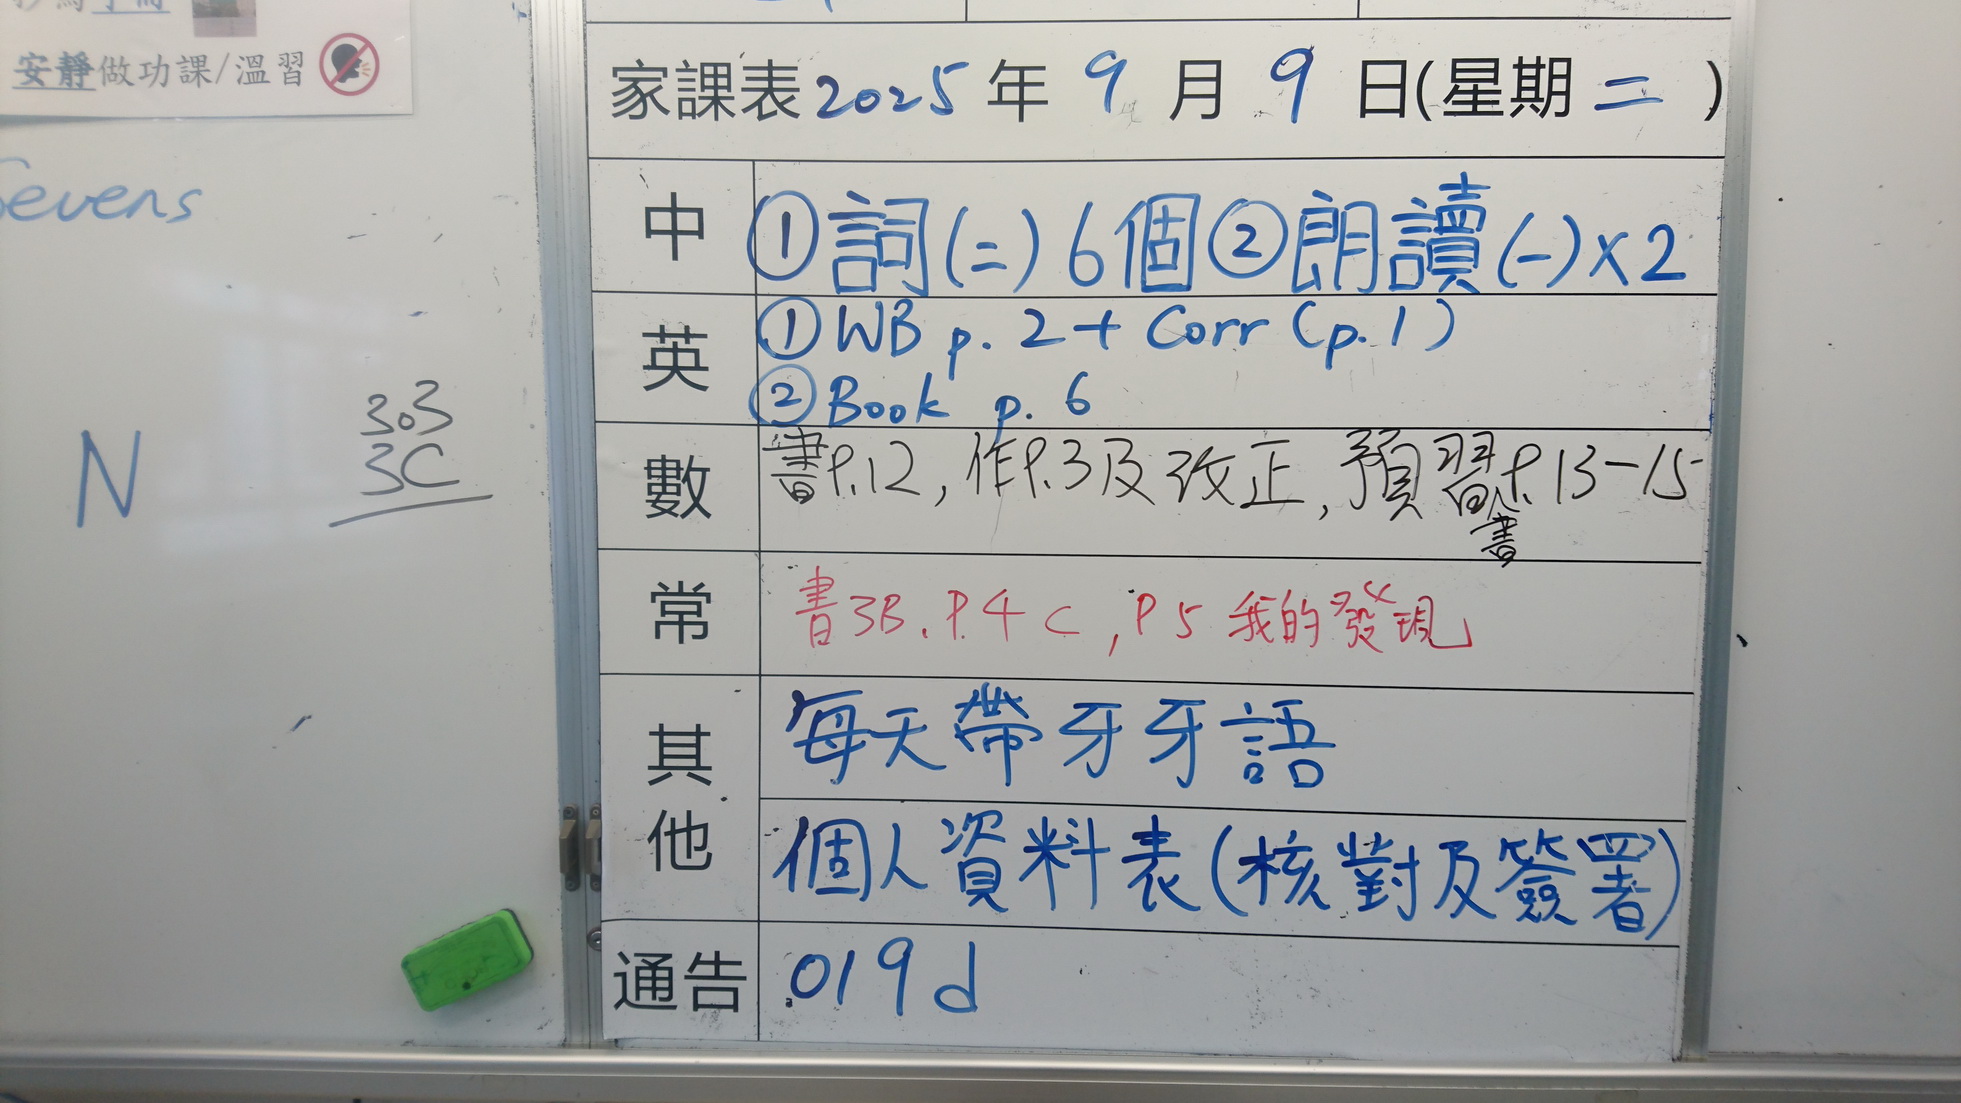 安靜做功課/溫習
evens
N
303
3C
家課表2025年9月9日(星期二)
中
①詞(二)6個②朗讀(一)x2
英
①WB p.2+Corr(p.1)
②Book p.6
數
書P.12,作P.3及改正,預習P.13-15
書
常
書3B.P.4C,P5我的發現
其他
每天帶牙牙語
個人資料表(核對及簽署)
通告
019d